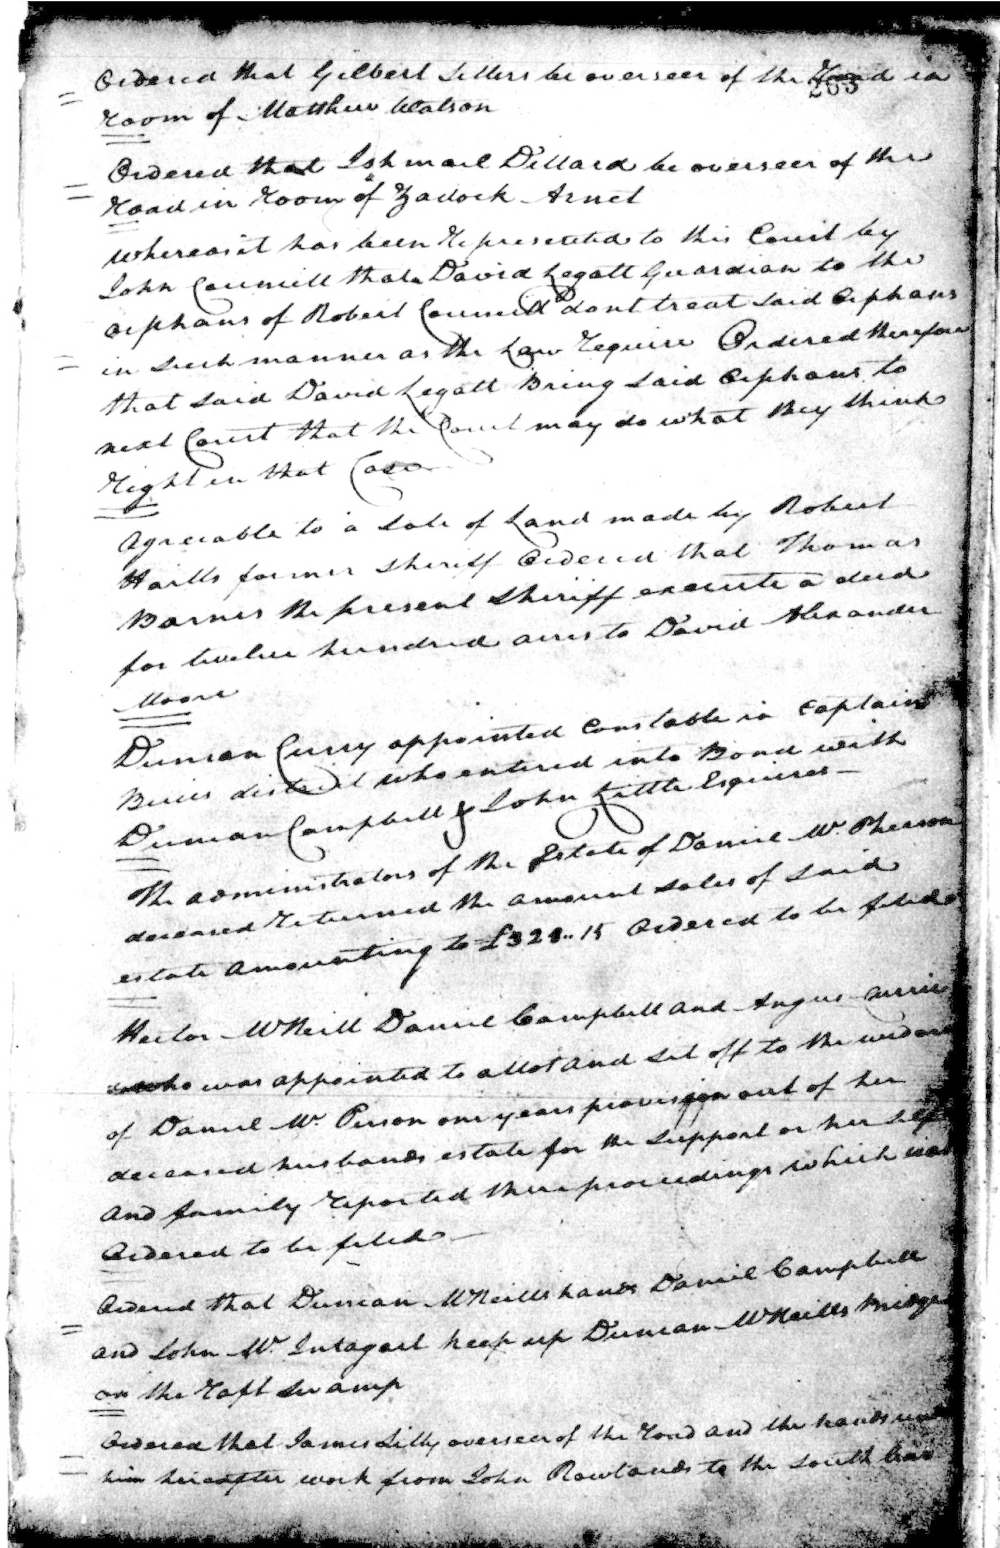 263
Ordered that Gilbert Sellers be overseer of the Road in
Room of Matthew Watson
Ordered that Ishmael Dillard be overseer of the
Road in Room of Zadock Arnet
whereas it has been Represented to this Court by
John Councill that David Legatt Guardian to the
orphans of Robert Councill dont treat said orphans
in such manner as the Law Require Ordered therefore
that said David Legatt Bring said Orphans to
next Court that the Court may do what they think
Right in that Case
Agreeable to a Sale of Land made by Robert
former sheriff Ordered that Thomas
Barnes the present Sheriff execute a deed
for twelve hundred acres to David Alexander
Moore
Duncan Curry appointed Constable in Captain
district who entered into Bond with
Duncan Campbell & John Little Esquires
The administrators of the Estate of Daniel Mc Pherson
deceased returned the amount sales of said
estate amounting to £328..15 Ordered to be filed
Hector McNeill Daniel Campbell and Angus Currie
who was appointed to allot and set off to the widow
of Daniel Mc Pirson one years provision out of her
deceased husbands estate for the support or her self
and family reported there proceedings which was
Ordered to be filed
Ordered that Duncan McNeills hands Daniel Campbell
and John Mc Intagart keep up Duncan McNeills Bridge
on the Raft Swamp
Ordered that James Lilly overseer of the road and the hands under
him hereafter work from John Rowlands to the South